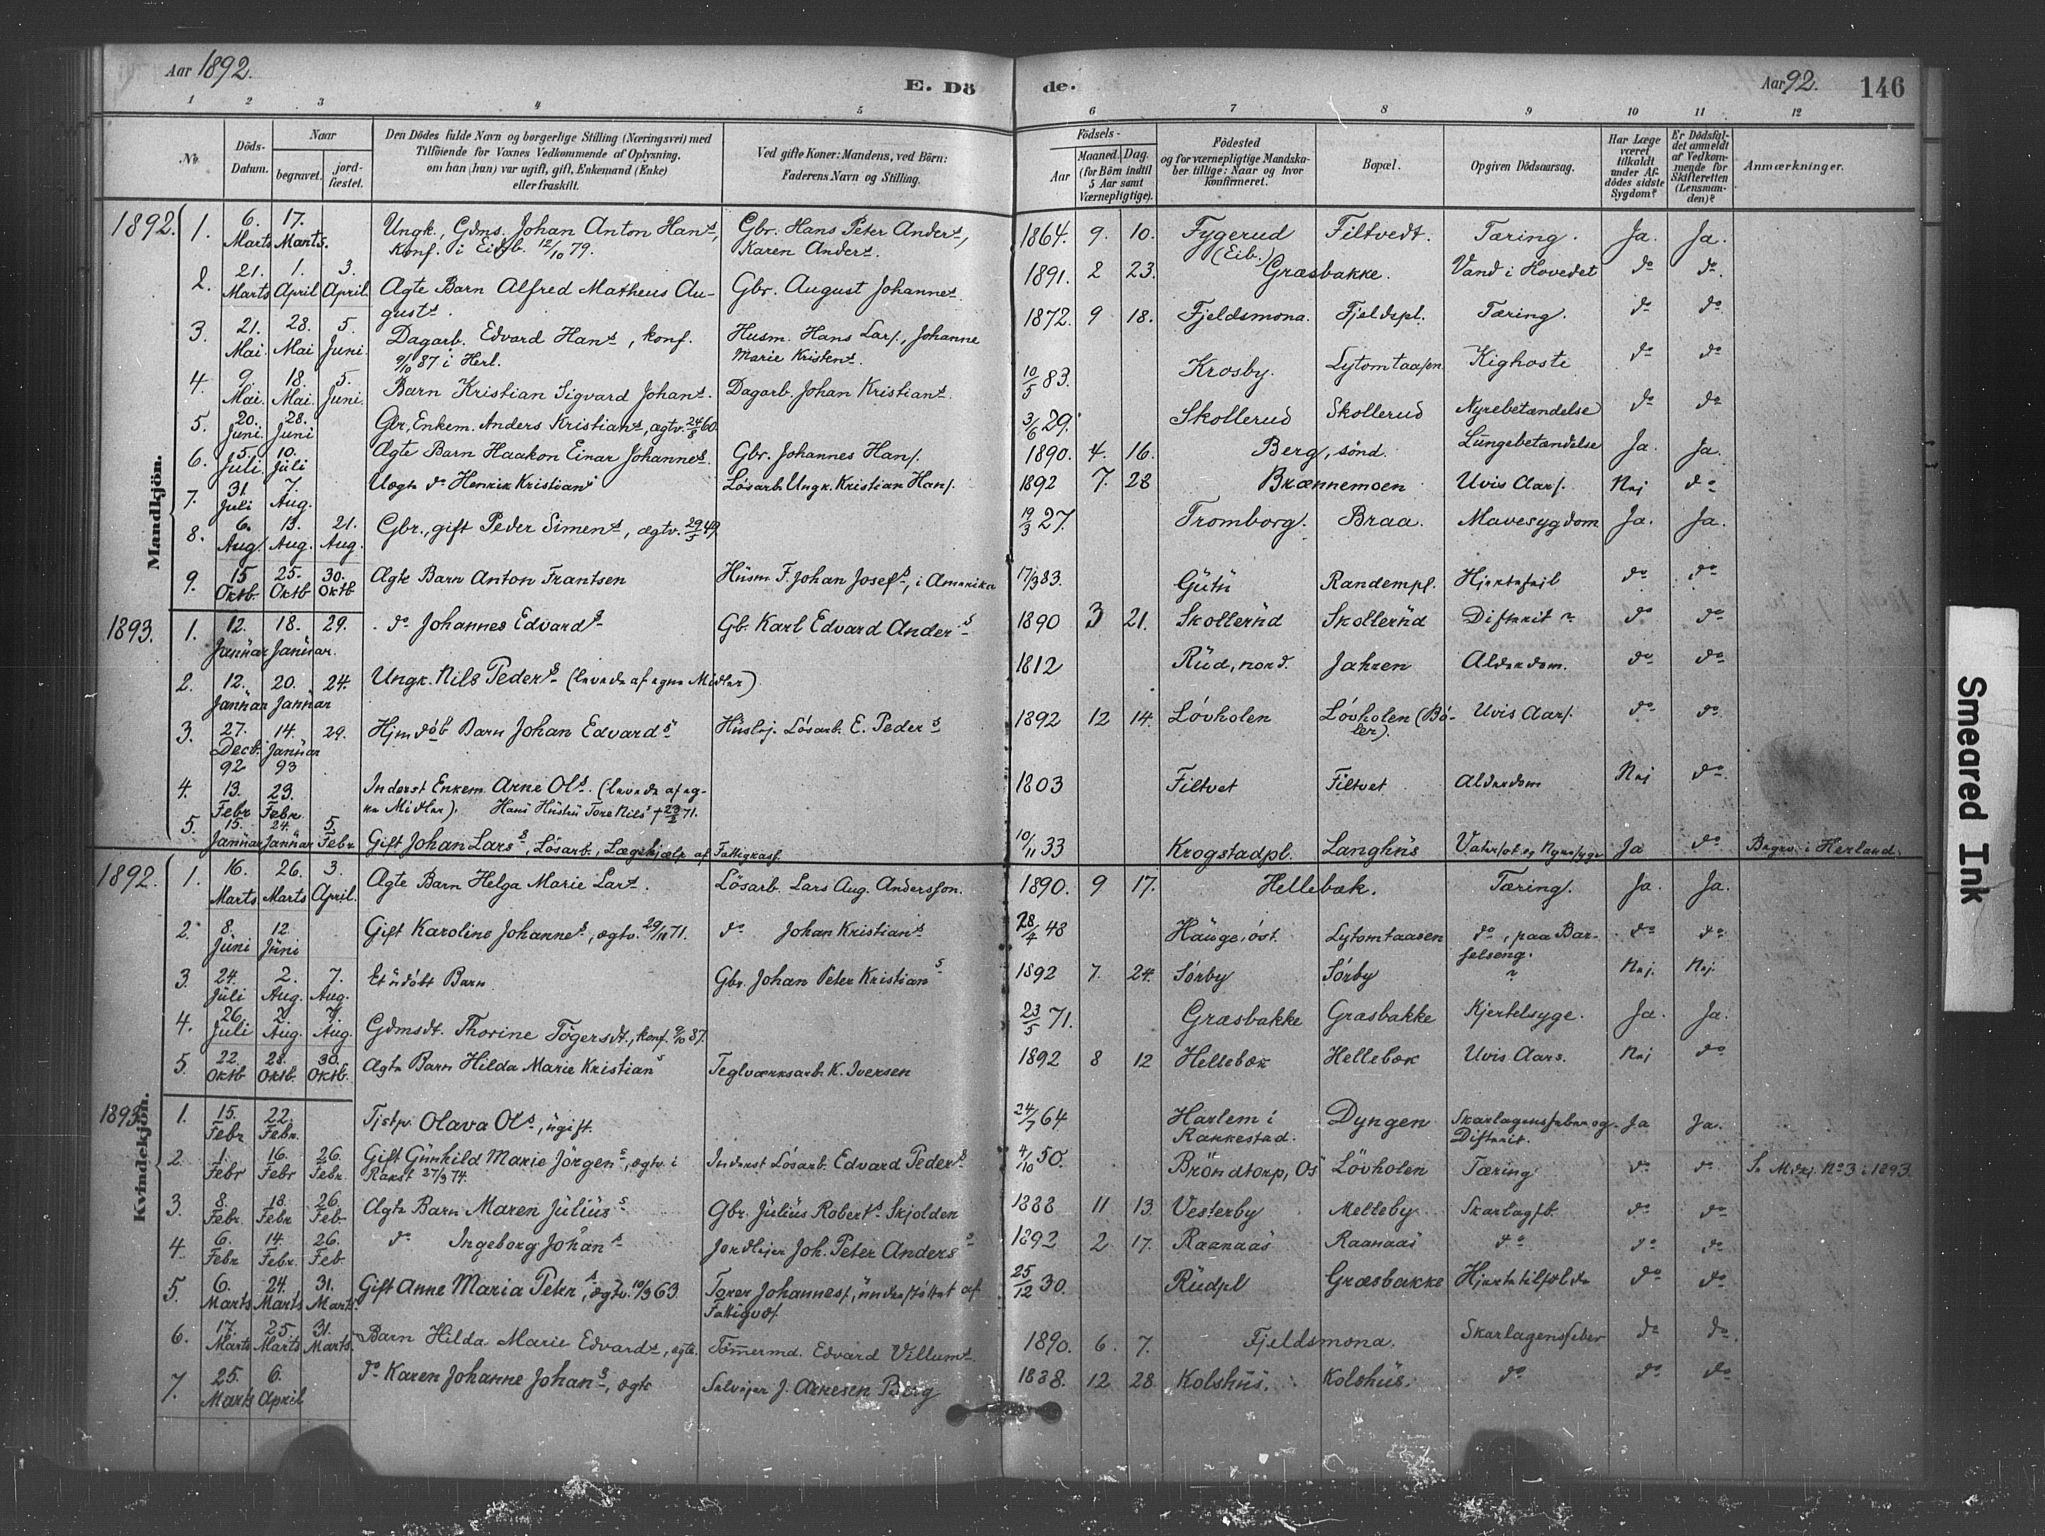 Aar 1892.
E. Dö
de.
Aar 92.
146
1 2 3 4 5 6 7 8 9 10 11 12
Nr.
Döds-
Datum.
Naar
begravet.
jord-
fæstet.
Den Dödes fulde Navn og borgerlige Stilling (Næringsvei) med
Tilföiende for Voxnes Vedkommende af Oplysning,
om han (hun) var ugift, gift, Enkemand (Enke)
eller fraskilt.
Ved gifte Koner: Mandens, ved Börn:
Faderens Navn og Stilling.
Födsels-
Aar
Maaned.
Dag.
(for Börn indtil
5 Aar samt
Værnepligtige).
Födested
og for værnepligtige Mandska-
ber tillige: Naar og hvor
konfirmeret.
Bopæl.
Opgiven Dödsaarsag.
Har Læge
været
tilkaldt
under Af-
dödes sidste
Sygdom?
Er Dödsfal-
det anmeldt
af Vedkom-
mende for
Skifteretten
(Lensman-
den)?
Anmærkninger.
Mandkjön.
1892. 1. 6. Marts 17. Marts. Ungk., Gdms. Johan Anton Hans, Gbr. Hans Peter Anders, 1864. 9. 10. Fygerud Filtvedt. Tæring. Ja. Ja.
Konf. i Eidsb. 12/10 79. Karen Anders. (Eib.)
2. 21. Marts 1. April 3. April. Ægte Barn Alfred Matheus Au- Gbr. August Johannes. 1891. 2 23. Græsbakke. Vand i Hovedet do do
gusts.
3. 21. Mai. 28. Mai 5. Juni. Dagarb. Edvard Hans, konf. Husm. Hans Lars, Johanne 1872. 9 18. Fjeldsmona. Fjeldspl. Tæring. do do
/10 87 i Herl. Marie Kristens.
4. 9. Mai. 18. Mai. 5. Juni. Barn Kristian Sigvard Johans. Dagarb. Johan Kristians. 10/5 83. Krosby. Lytomtaasen. Kighoste do do
5. 20. Juni. 28. Juni Gbr, Enkem. Anders Kristians, ægtv. 24/8 60. 3/6 29. Skollerud Skollerud Nyrebetændelse do do
6. 5. Juli. 10. Juli Ægte Barn Haakon Einar Johannes. Gbr. Johannes Hans. 1890. 4. 16. Berg, sönd. Lungebetændelse Ja. Ja.
7. 31 Juli 7. Aug. Uægte do Henrik Kristians Lösarb. Ungk. Kristian Hans. 1892 7. 28 Brænnemoen Uvis Aars. Nej do
8. 6. Aug. 13. Aug. 21. Aug. Gbr., gift Peder Simens, ægtv. 29/5 49. 19/3 27. Tromborg. Braa. Mavesygdom Ja. Ja.
9. 15 Oktb. 25. Oktb 30. Oktb Ægte Barn Anton Frantsen Husm. F. Johan Josefs, i Amerika 17/3 83. Gutu Randempl. Hjertefeil do do
1893. 1. 12. Januar 18. Januar. 29. do Johannes Edvards Gb. Karl Edvard Anders 1890 3 21. Skollerud Skollerud Difterit ? do do
2. 12. Januar 20. Januar 24. Ungk. Nils Peders (levede af egne Midler) 1812 Rud, nord. Jahren Alderdom. do do
3. 27. Decb. 92 14. Januar 93 29. Hjmdöb Barn Johan Edvards Husløj. Lösarb. E. Peders 1892 12 14. Lövholen Lövholen (Bö- Uvis Aars. do do
ler).
4. 13. Febr 23. Febr. Inderst Enkem. Arne Ols. (levede af eg- 1803 Filtvet Filtvet Alderdom Nej do
ne Midler). Hans Hustru Tore Nils † 23/2 71.
5. 15. Januar 24. Januar 5 Febr Gift Johan Lars, Lösarb., Lægehjælp af Fattigkasf. 10/11 33 Krogstadpl. Langhus Vatersot og Nyresyge Ja do Begrv. i Herland.
Kvindekjön.
1892. 1. 16. Marts 26. Marts 3. April. Ægte Barn Helga Marie Lars. Lösarb. Lars Aug. Andersson. 1890. 9 17. Hellebæk. Tæring. Ja. Ja.
2. 8. Juni 12. Juni Gift Karoline Johannes, ægtv. 29/11 71. do Johan Kristians 28/4 48 Hauge, öst. Lytomtaasen do, paa Bar- do do
selseng.
3. 24. Juli 2. Aug. 7. Aug. Et udöbt Barn Gbr. Johan Peter Kristians 1892 7. 24. Sörby Sörby ? Nej. Nej.
4. 26. Juli 2. Aug. 7. Aug. Gdmsdt. Thorine Tögersdt., konf. /10 87. 23/5 71. Græsbakke Græsbakke Kjertelsyge. Ja. Ja.
5. 22. Oktb 28. Oktb. 30. Oktb. Ægte Barn Hilda Marie Kristians Teglværksarb. K. Iversen 1892 8 12 Hellebæk Hellebæk Uvis Aars. Nej do
1893. 1. 15. Febr 22. Febr. Tjstp. Olava Ols, ugift. 24/7 64 Harlem i Dyngen Skarlagensfeber og Ja Ja.
Rakkestad. Difterit.
2. 1. Febr 16. Febr 26. Febr. Gift Gunhild Marie Jörgens, ægtv. i Inderst Lösarb. Edvard Peders 4/10 50. Bröndtorp, Os Lövholen Tæring do do Se No 3 i 1893.
Rakst 27/3 74.
3. 8. Febr. 18. Febr 26. Feb. Ægte Barn Maren Julius Gbr. Julius Roberts Skjolden 1888 11 13. Vesterby Melleby Skarlagsfb. do do
4. 6. Febr 14. Febr. 26. Feb. do Ingeborg Johans Jordlejer Joh. Peter Anders 1892 2 17. Raanaas Raanaas do do do
5. 6. Marts 24. Marts 31. Marts. Gift Anne Maria Peters, ægtv. 10/3 63 Torer Johanness, understöttet af 25/12 30. Rudpl Græsbakke Hjertetilfælde do do
Fattigvæs.
6. 17. Marts 25. Marts 31. Marts. Barn Hilda Marie Edvards, ægte. Tömermd. Edvard Villums. 1890. 6. 7. Fjeldsmona. Skarlagensfeber do do
7. 25. Marts 6. April do Karen Johanne Johans, ægte Selvejer J. Arnesen Berg 1888. 12 28 Kolshus. Kolshus. do do do
Smeared Ink